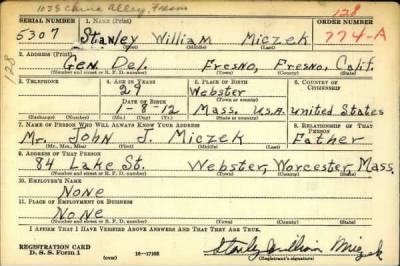 1028 China Alley, Fresno
SERIAL NUMBER 1. NAME (Print) ORDER NUMBER
128
5307 Stanley William Miczek 774-A
2. ADDRESS (Print)
128
Gen. Del. Fresno, Fresno, Calif.
(Number and street or R. F. D. number) (Town) (County) (State)
3. TELEPHONE 4. AGE IN YEARS 5. PLACE OF BIRTH 6. COUNTRY OF CITIZENSHIP
29 Webster
DATE OF BIRTH (Town or county)
1-8-12 Mass. U.S.A. United States
(Exchange) (Number) (Mo.) (Day) (Yr.) (State or country)
7. NAME OF PERSON WHO WILL ALWAYS KNOW YOUR ADDRESS 8. RELATIONSHIP OF THAT PERSON
Mr. John J. Miczek Father
(Mr., Mrs., Miss) (First) (Middle) (Last)
9. ADDRESS OF THAT PERSON
84 Lake St. Webster, Worcester, Mass.
(Number and street or R. F. D. number) (Town) (County) (State)
10. EMPLOYER'S NAME
None
11. PLACE OF EMPLOYMENT OR BUSINESS
None
(Number and street or R. F. D. number) (Town) (County) (State)
I AFFIRM THAT I HAVE VERIFIED ABOVE ANSWERS AND THAT THEY ARE TRUE.
REGISTRATION CARD
D. S. S. Form 1 (over) 16—17105 Stanley William Miczek
(Registrant's signature)